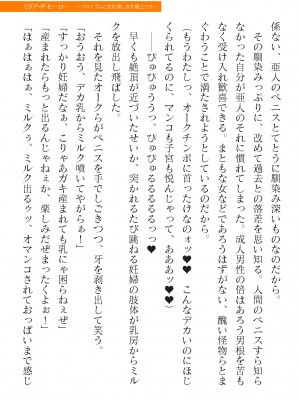 係ない、亜人のペニスとてとうに馴染み深いものなのだから。
その馴染みっぷりに、改めて過去との落差を思い知る。人間のペニスすら知ら
なかった自分が亜人のそれに慣れてしまった。成人男性の倍はあろう男根を苦も
なく受け入れ歓喜できる。まともな女などであろうはずがない、醜い怪物らとま
ぐわうことで満たされようとしているのだから。
「もうわたしっ、オークチンポに首ったけなのォッ♥♥　こんなデカいのにほじ
くられてるのに、マンコも子宮も悦んじゃって、あああッ♥♥」
――ぴゅぴゅうううっ、ぴゅぴゅるるるるるっっ♥
早くも絶頂が近づいたせいか、突かれるたび跳ねる妊婦の肢体が乳房からミル
クを放出し飛ばした。
それを見たオークらがペニスを手でしごきつつ、牙を剥き出して笑う。
「おうおう、デカ乳からミルク噴いてやがらぁ！」
「すっかり妊婦だなぁ、こりゃあガキ産まれても乳にゃ困らねぇぜ」
「産まれたらもっと出るんじゃねぇか、楽しみだぜまったくよぉ！」
「はぁはぁはぁはぁ、ミルクぅ、ミルク出るゥッ、オマンコされておっぱいまで感じ